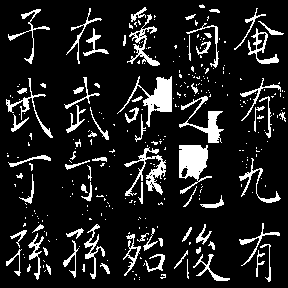 奄有九有
商之先後
愛命不殆
在武丁孫
子武丁孫